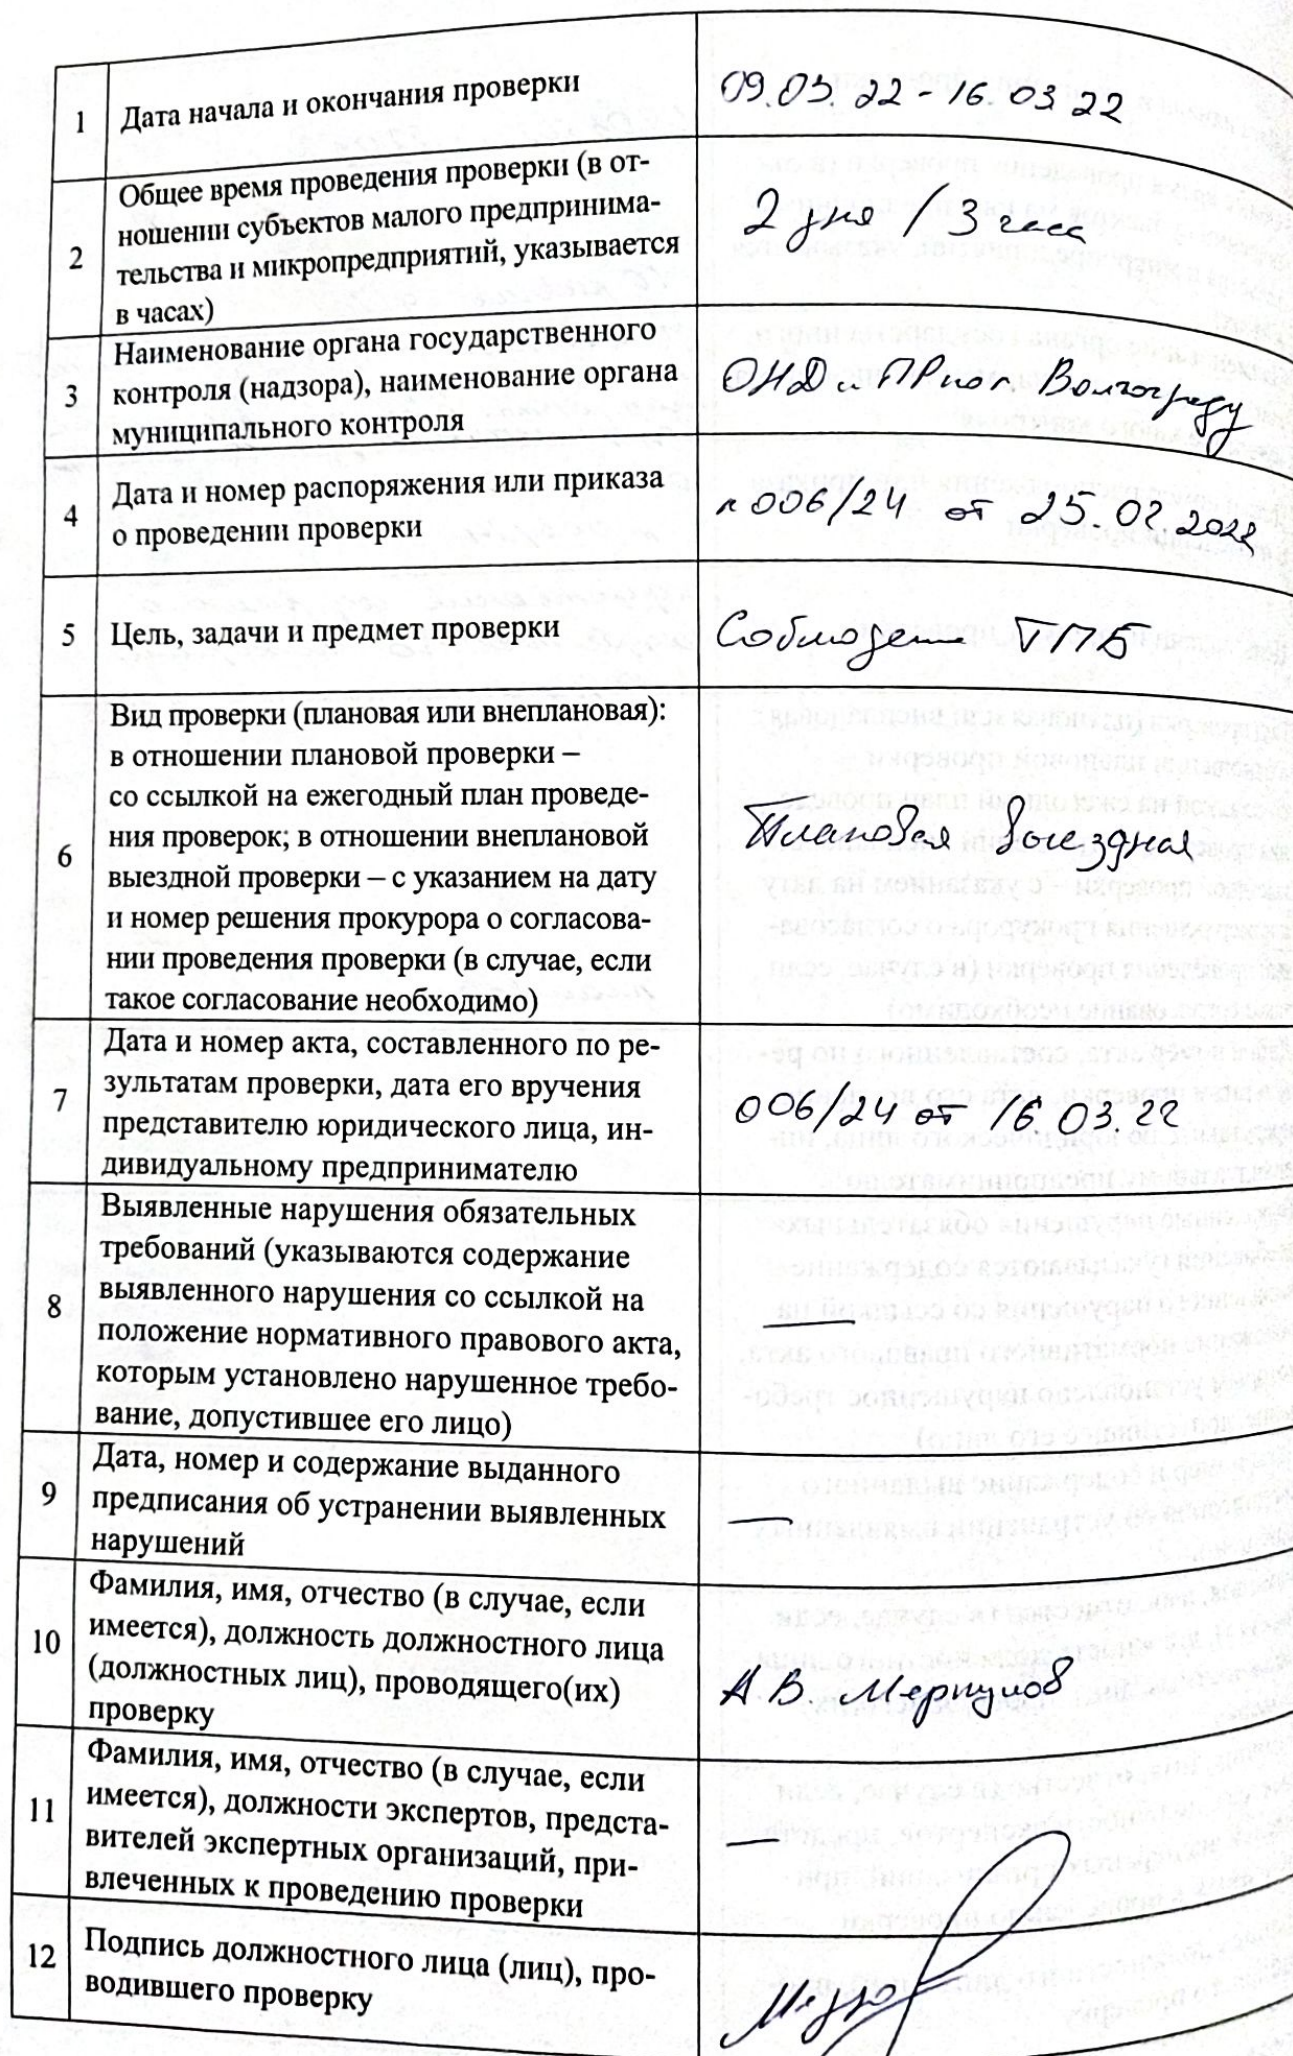 1 Дата начала и окончания проверки 09.03.22 - 16.03 22
2 Общее время проведения проверки (в от-
ношении субъектов малого предпринима-
тельства и микропредприятий, указывается
в часах)
2 дня / 3 часа
3 Наименование органа государственного
контроля (надзора), наименование органа
муниципального контроля
ОНД и ПР по г. Волгограду
4 Дата и номер распоряжения или приказа
о проведении проверки
006/24 от 25.02.2022
5 Цель, задачи и предмет проверки
ТПБ
6 Вид проверки (плановая или внеплановая):
в отношении плановой проверки –
со ссылкой на ежегодный план проведе-
ния проверок; в отношении внеплановой
выездной проверки – с указанием на дату
и номер решения прокурора о согласова-
нии проведения проверки (в случае, если
такое согласование необходимо)
Плановая выездная
7 Дата и номер акта, составленного по ре-
зультатам проверки, дата его вручения
представителю юридического лица, ин-
дивидуальному предпринимателю
006/24 от 16.03.22
8 Выявленные нарушения обязательных
требований (указываются содержание
выявленного нарушения со ссылкой на
положение нормативного правового акта,
которым установлено нарушенное требо-
вание, допустившее его лицо)
—
9 Дата, номер и содержание выданного
предписания об устранении выявленных
нарушений
—
10 Фамилия, имя, отчество (в случае, если
имеется), должность должностного лица
(должностных лиц), проводящего(их)
проверку
А В. Меркулов
11 Фамилия, имя, отчество (в случае, если
имеется), должности экспертов, предста-
вителей экспертных организаций, при-
влеченных к проведению проверки
—
12 Подпись должностного лица (лиц), про-
водившего проверку